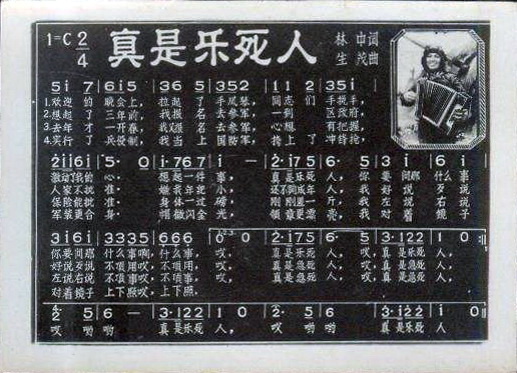 1=C 2/4 真是乐死人 林中词
生茂曲
5 i 7 | 6 i 5 | 3 6 5 | 3 5 2 | 1 1 2 | 3 5 i |
1.欢迎 的 晚会上, 拉起 了 手风琴, 同志 们 手挽手,
2.想起 了 三年前, 我报 名 去参军, 一到 区政府,
3.去年 才 一开春, 我又报 名 去参军, 心想 有把握,
4.实行 了 兵役制, 我当 上 国防军, 挎上了 冲锋枪,
激动了我的 心. 想起一件 事, 真是乐死 人, 你要问那 什么 事
人家不批 准. 嫌我年纪 小, 还不到成年 人, 我好说 歹说
保险能批 准. 身体一过 磅, 刚刚重一 斤, 我左说 右说
军装更合 身. 帽徽闪金 光, 领章更漂 亮, 我对着 镜子
3 i 6 i | 3 3 3 5 | 6 6 6 | 0 0 | 2·i 7 5 | 6·5 | 3·i 2 2 | 1 0 :||
你要问那 什么事啊, 什么事, 哎, 真是乐死 人, 哎, 真是乐死 人,
好说歹说 不顶用哎, 不顶用, 哎, 真是急死 人, 哎, 真是急死 人,
左说右说 不顶事哎, 不顶事, 哎, 真是急死 人, 哎, 真是急死 人,
对着镜子 上下照哎, 上下照,
2 5 | 6 — | 3·i 2 2 | 1 0 | 2·5 | 6 — | 3·i 2 2 | i 0 ||
哎 哟 真是乐死 人, 哎 哟 真是乐死 人